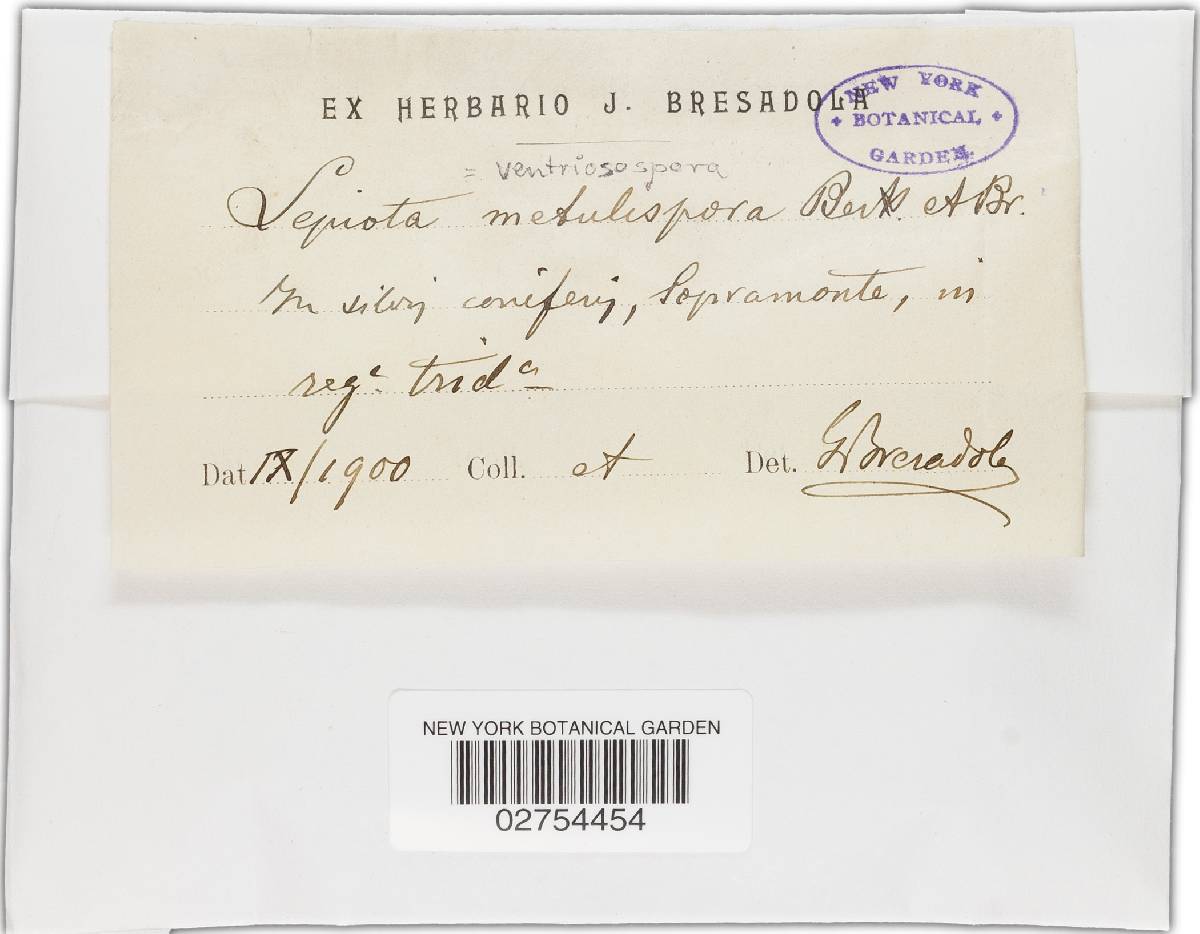 EX HERBARIO J. BRESADOLA
NEW YORK
BOTANICAL
GARDEN
= ventriosospora
Lepiota metulispora Berk. et Br.
In silvis coniferis, Sopramonte, in
reg.e trid.a
Dat. IX/1900 Coll. et Det. G Bresadola
NEW YORK BOTANICAL GARDEN
02754454